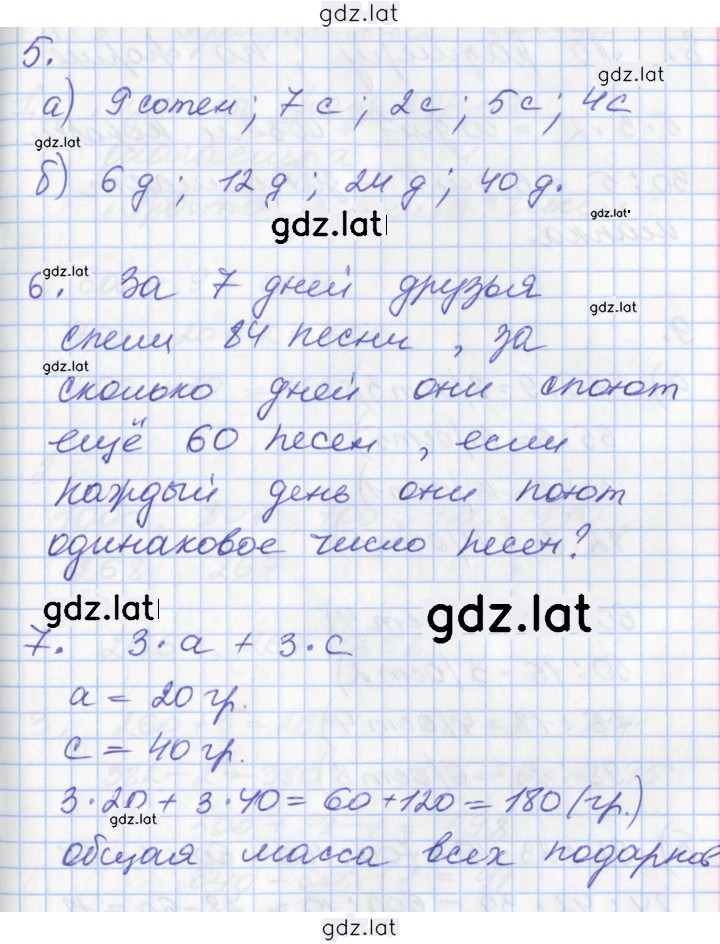 gdz.lat
5.
gdz.lat
а) 9 сотен; 7 с; 2с; 5с; 4с
gdz.lat
б) 6 д; 12 д; 24 д; 40 д.
gdz.lat
gdz.lat
gdz.lat
6. За 7 дней друзья
gdz.lat
спели 84 песни, за
gdz.lat
сколько дней они споют
ещё 60 песен, если
каждый день они поют
одинаковое число песен?
gdz.lat
gdz.lat
7. 3·a + 3·c
a = 20 гр.
c = 40 гр.
3·20 + 3·40 = 60+120 = 180 (гр.)
gdz.lat
общая масса всех подарков
gdz.lat